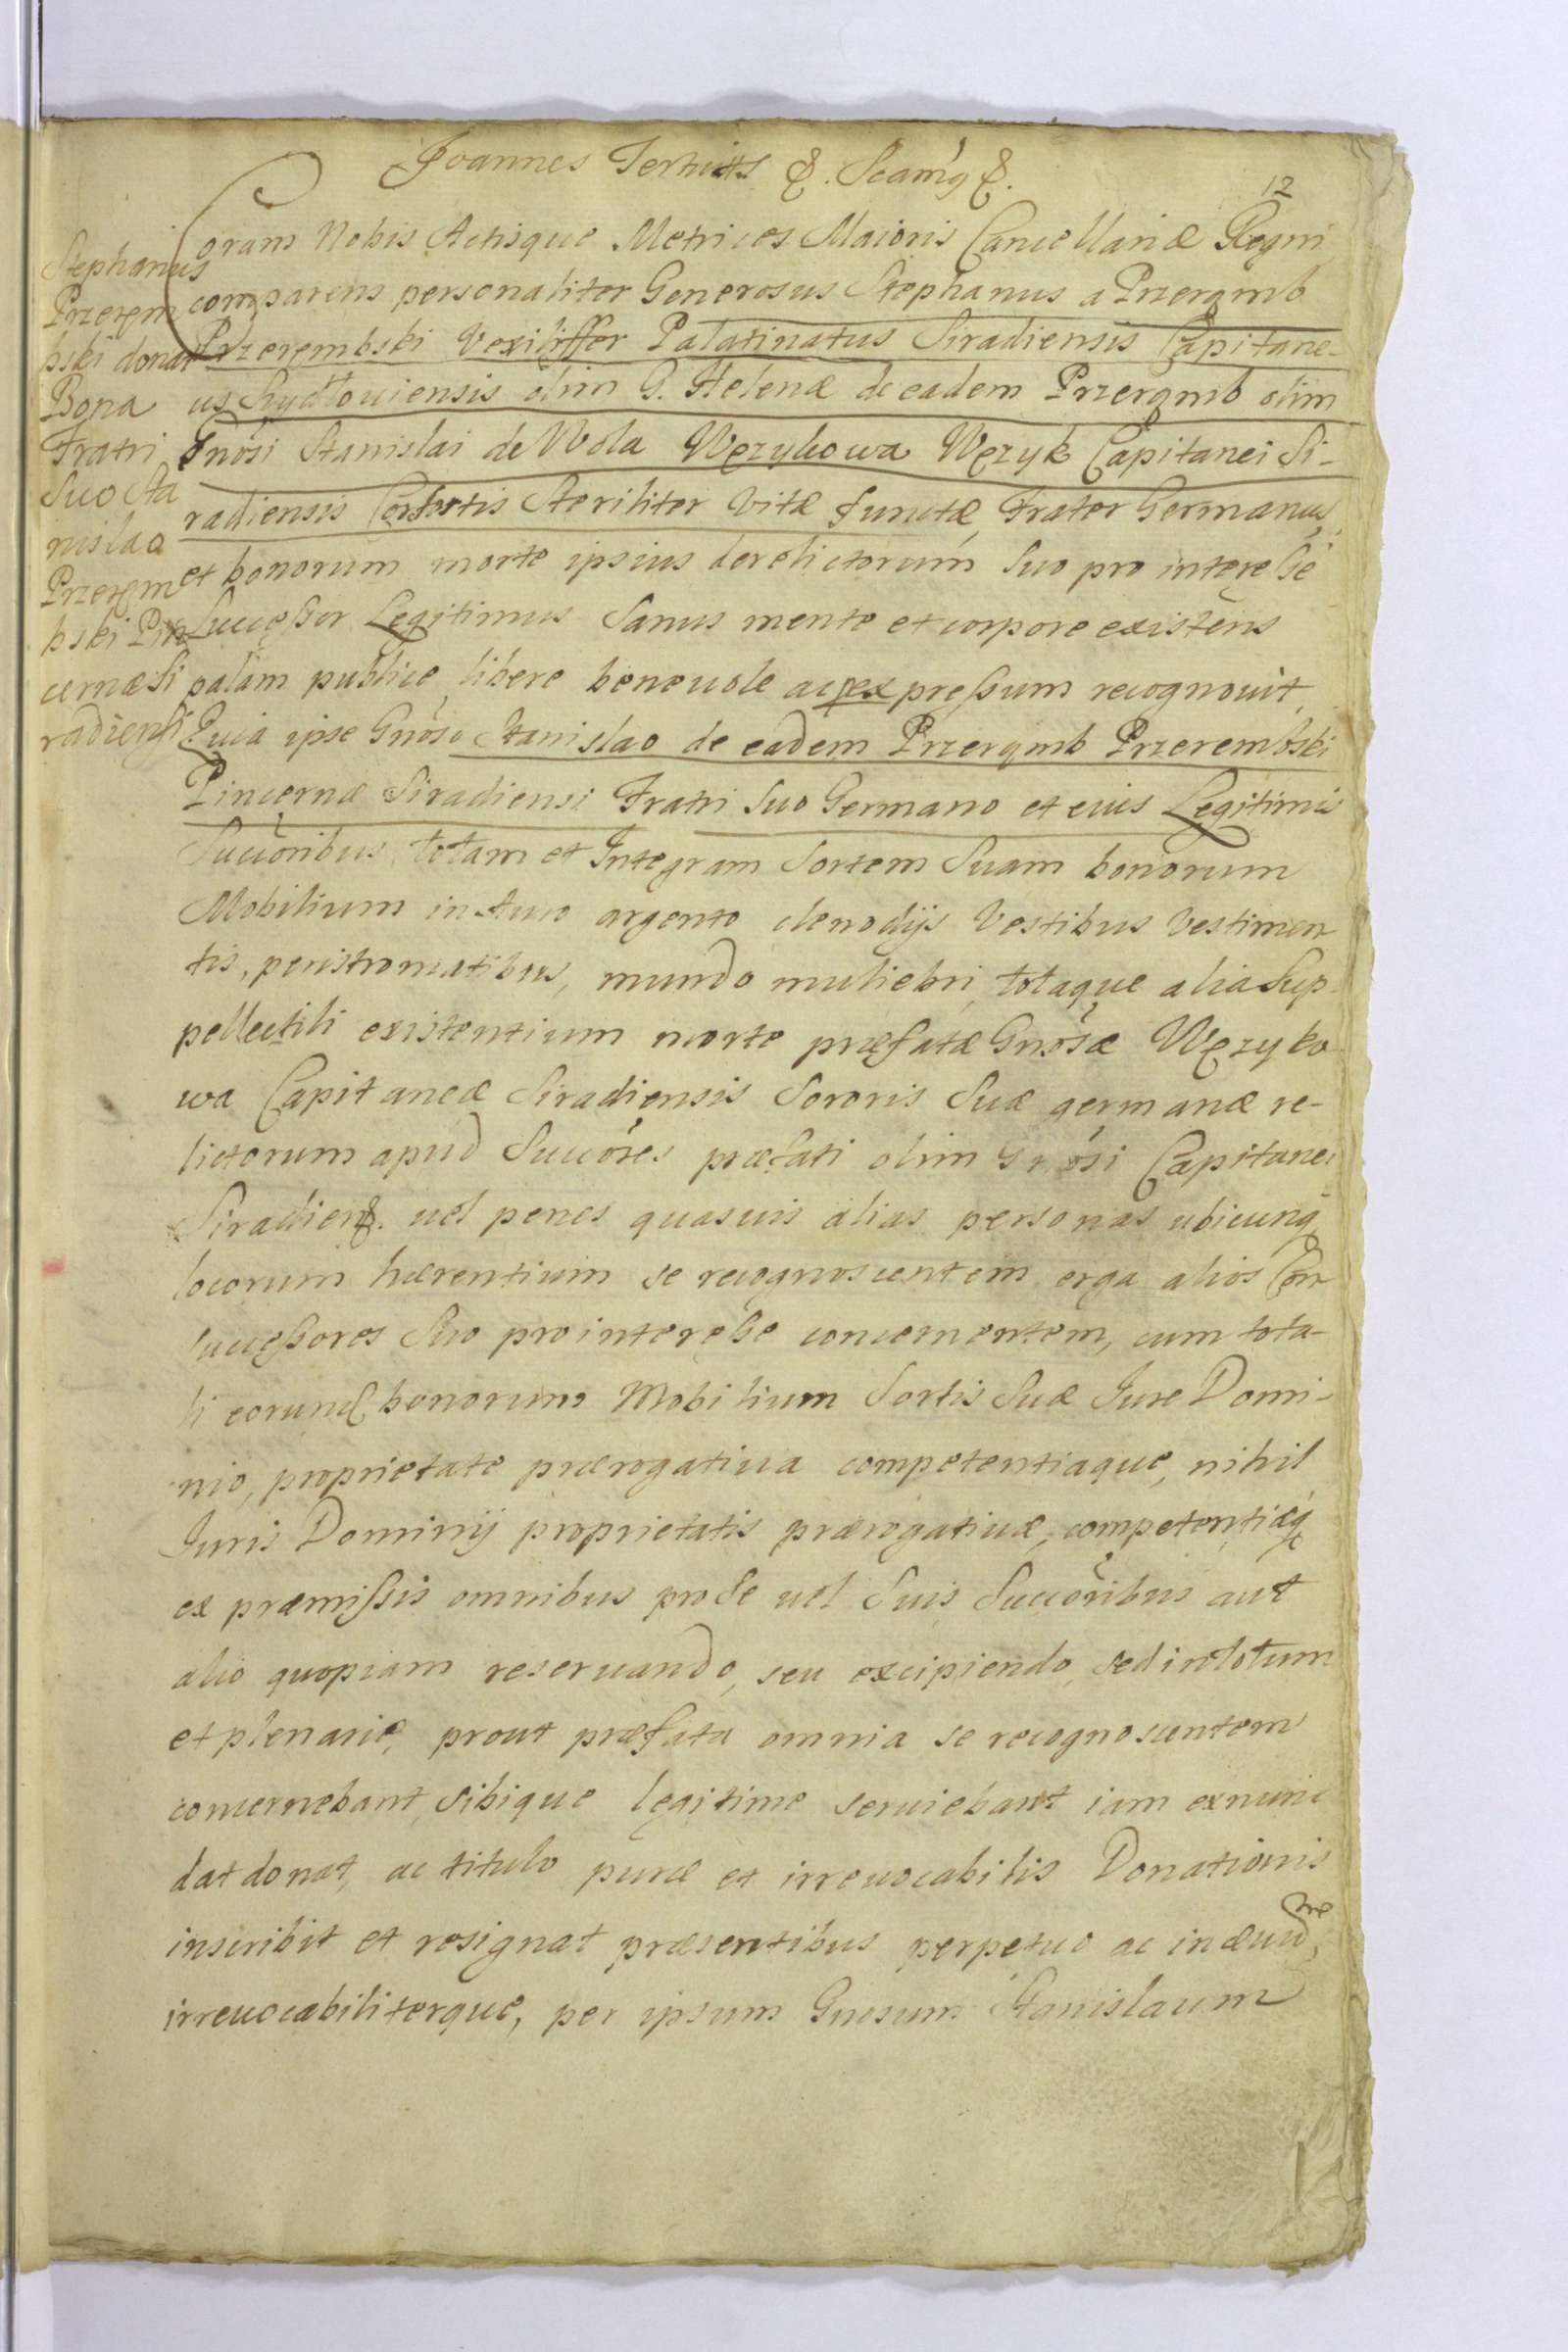 Joannes Tertius &. Seamq̃ &.
12
Stephanus
Przerem
bski donat
Bona
Fratri
Suo Sta
nislao
Przerem
bski Pin
cernæ Si
radiensi
Coram Nobis Actisque Metrices Maioris Cancellariæ Regni
comparens personaliter Generosus Stephanus a Przerąmb
Przerembski Vexiliffer Palatinatus Siradiensis Capitane-
us olim G. Helenæ de eadem Przerąmb olim
Gnosi Stanislai de Wola Węzykowa Węzyk Capitanei Si-
radiensis Consortis Steriliter Vitæ functæ Frater Germanus,
et bonorum morte ipsius derelictorum Suo pro interesse
Successor Legitimus Sanus mente et corpore existens
palam publice libere beneuole acp expressum recognouit,
Quia ipse Gnoso Stanislao de eadem Przerąmb Przerembski
Pincernæ Siradiensi Fratri Suo Germano et eius Legitimis
Succoribus totam et Integram Sortem Suam bonorum
Mobilium in Auro argento clenodijs Vestibus Vestimen
tis, peristromatibus, mundo muliebri, totaque alia Sup-
pellectili existentium morte præfatæ Gnosæ Węzyko
wa Capitaneæ Siradiensis Sororis Suæ germanæ re-
lictorum apud Succores præfati olim Gnosi Capitanei
Siradien&. uel penes quasuis alias personas ubicunq̃
locorum hærentium se recognoscentem erga alios Con
successores Suo pro interesse concernentem, cum tota-
li eorund bonorum Mobilium Sortis Suæ Jure Domi-
nio, proprietate prærogatiua competentiaque, nihil
Juris Dominij proprietatis prærogatiuæ, competentiæq̃
ex præmissis omnibus pro Se uel Suis Succoribus aut
alio quopiam reseruando, seu excipiendo, sed in totum
et plenarie, prout præfata omnia se recognoscentem
concernebant, sibique legitime seruiebant iam exnunc
dat donat, ac titulo puræ et irreuocabilis Donationis
inscribit et resignat præsentibus perpetuo ac in æuu
irreuocabiliterque, per ipsum Gnosum Stanislaum